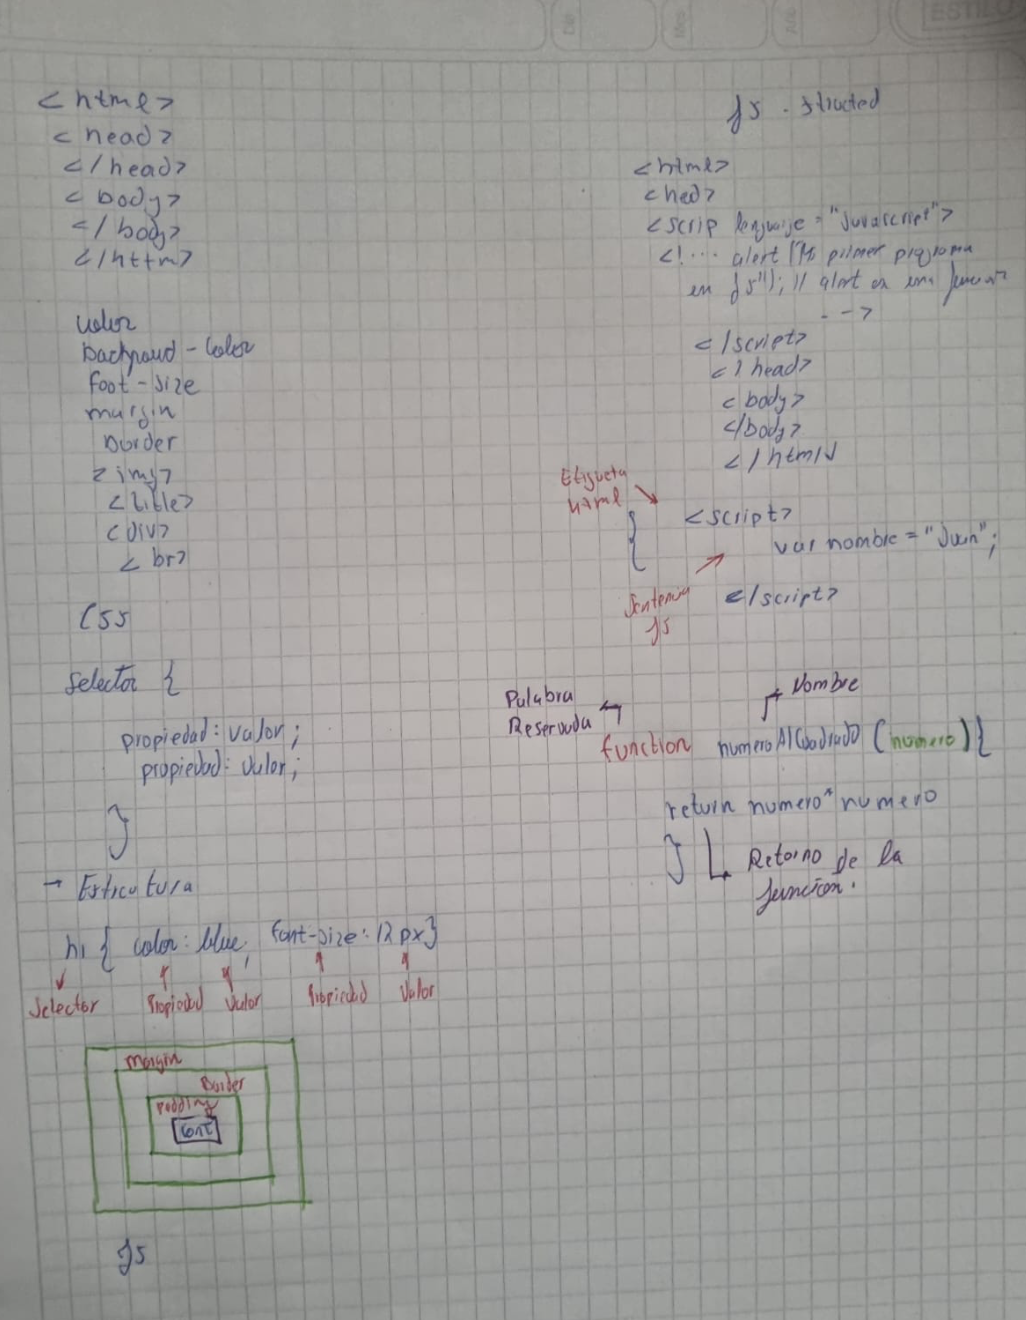 ESTILO
<html>
<head>
</head>
<body>
</body>
</httm>
color
backgraud - Color
foot - size
margin
Border
<img>
<title>
<div>
<br>
CSS
Selector {
propiedad: valor;
propiedad: valor;
}
→ Estrcutura
h1 { color: blue, font-size: 12px}
Selector Propiedad Valor Propiedad Valor
Margin
Border
Padding
Cont
JS
JS - Structed
<html>
<hed>
<scrip lenguaje = "Javascript">
<!.... alert ("Mi primer programa
en JS"); // alert es una función
- ->
</script>
</head>
<body>
</body>
</html
Etiqueta
html
<script>
var nombre = "Juan";
Sentencia
JS
</script>
Palabra
Reservada
Nombre
function numeroAlCuadrado (numero) {
return numero * numero
}
Retorno de la
función.